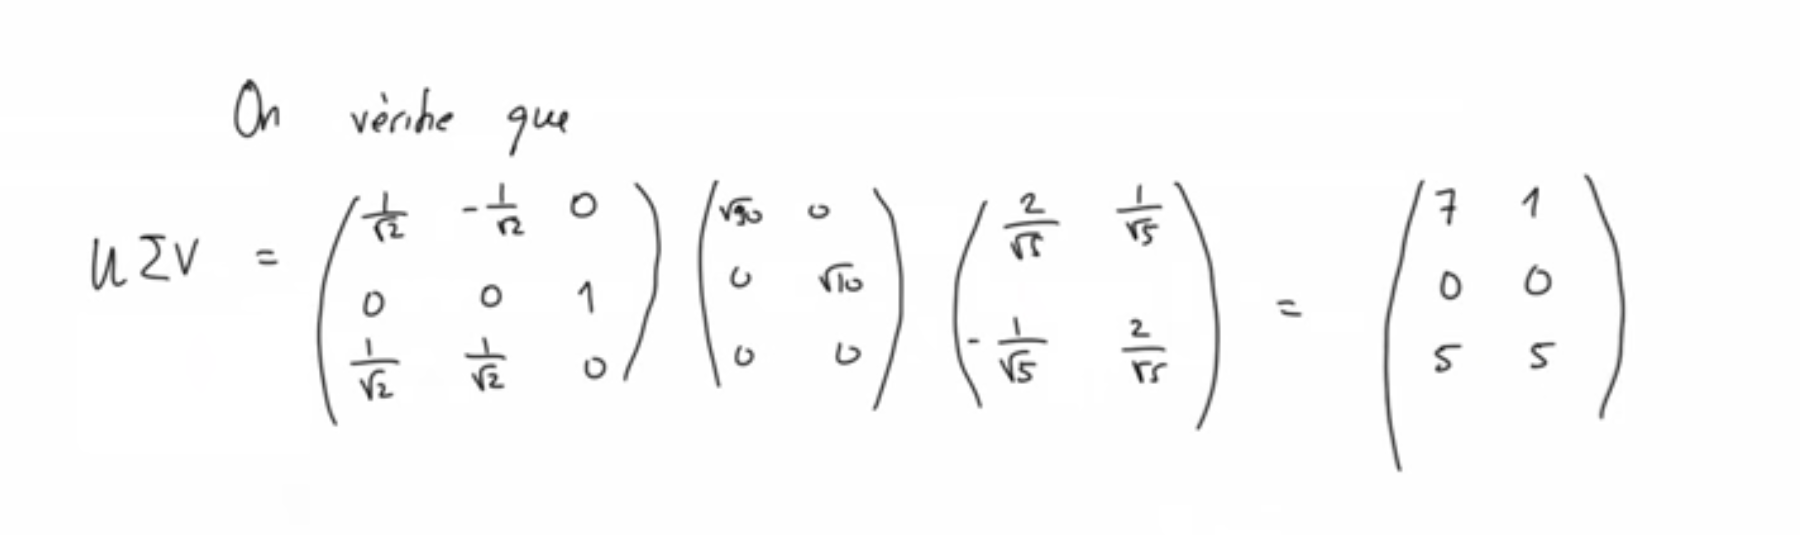 On vérifie que
UΣV = \begin{pmatrix} \frac{1}{\sqrt{2}} & -\frac{1}{\sqrt{2}} & 0 \\ 0 & 0 & 1 \\ \frac{1}{\sqrt{2}} & \frac{1}{\sqrt{2}} & 0 \end{pmatrix} \begin{pmatrix} \sqrt{90} & 0 \\ 0 & \sqrt{10} \\ 0 & 0 \end{pmatrix} \begin{pmatrix} \frac{2}{\sqrt{5}} & \frac{1}{\sqrt{5}} \\ -\frac{1}{\sqrt{5}} & \frac{2}{\sqrt{5}} \end{pmatrix} = \begin{pmatrix} 7 & 1 \\ 0 & 0 \\ 5 & 5 \end{pmatrix}